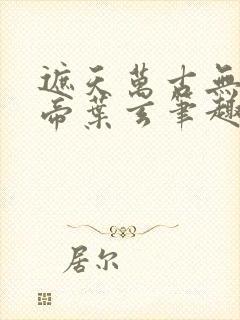 遮天萬古無
帝葉玄筆趣
居尔